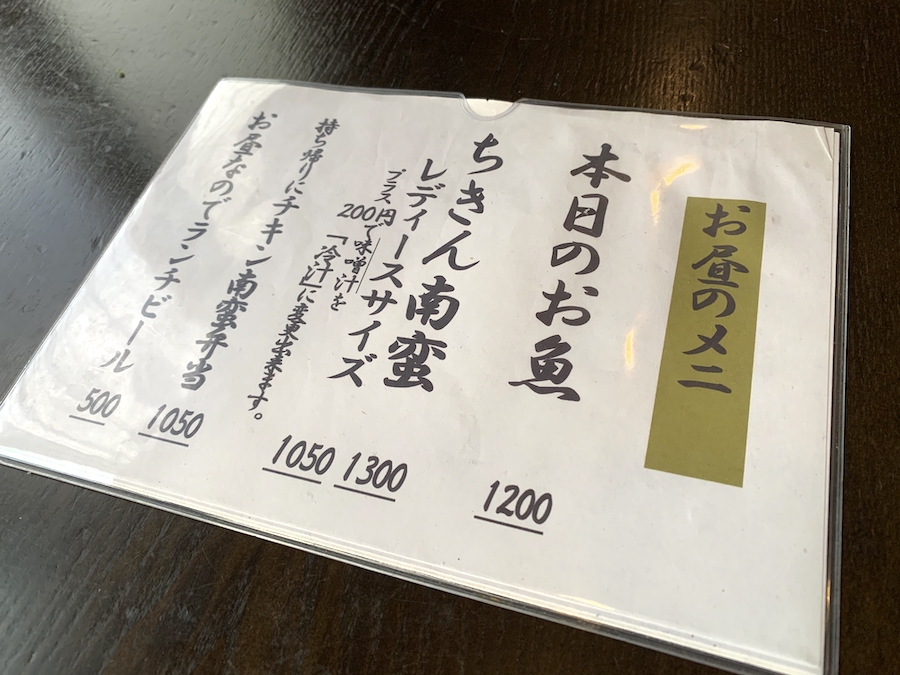 お昼のメニ
本日のお魚
1200
ちきん南蛮
1300
レディースサイズ
1050
プラス200円で味噌汁を
「冷汁」に変更出来ます。
持ち帰りにチキン南蛮弁当
1050
お昼なのでランチビール
500